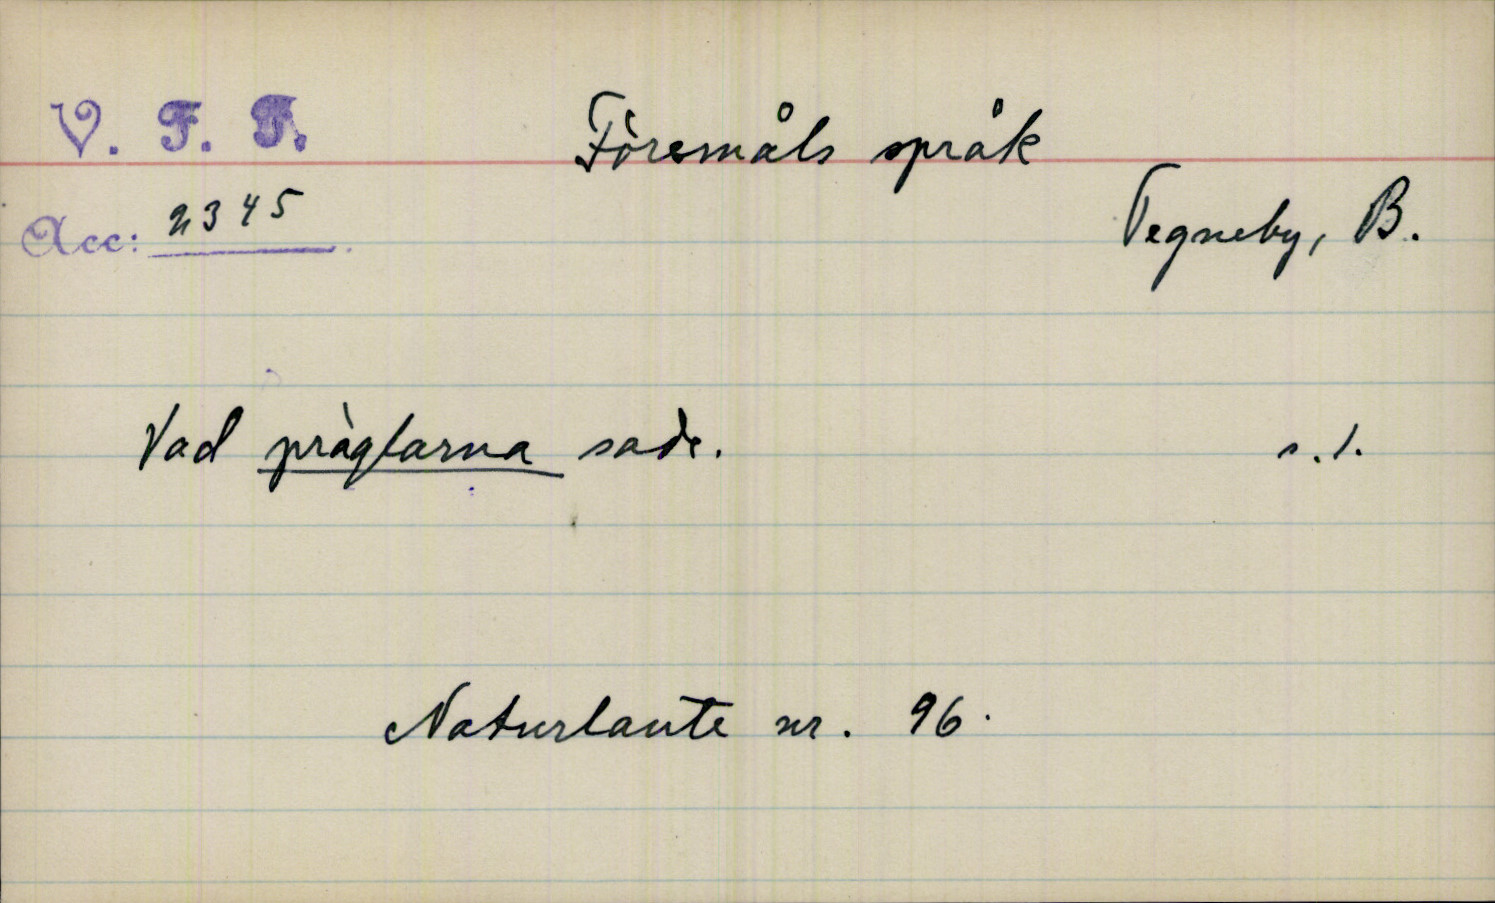 V. F. F.
Föremåls språk
Acc: 2345
Tegneby, B.
Vad präglarna sade. s. 1.
Naturlaute nr. 96.